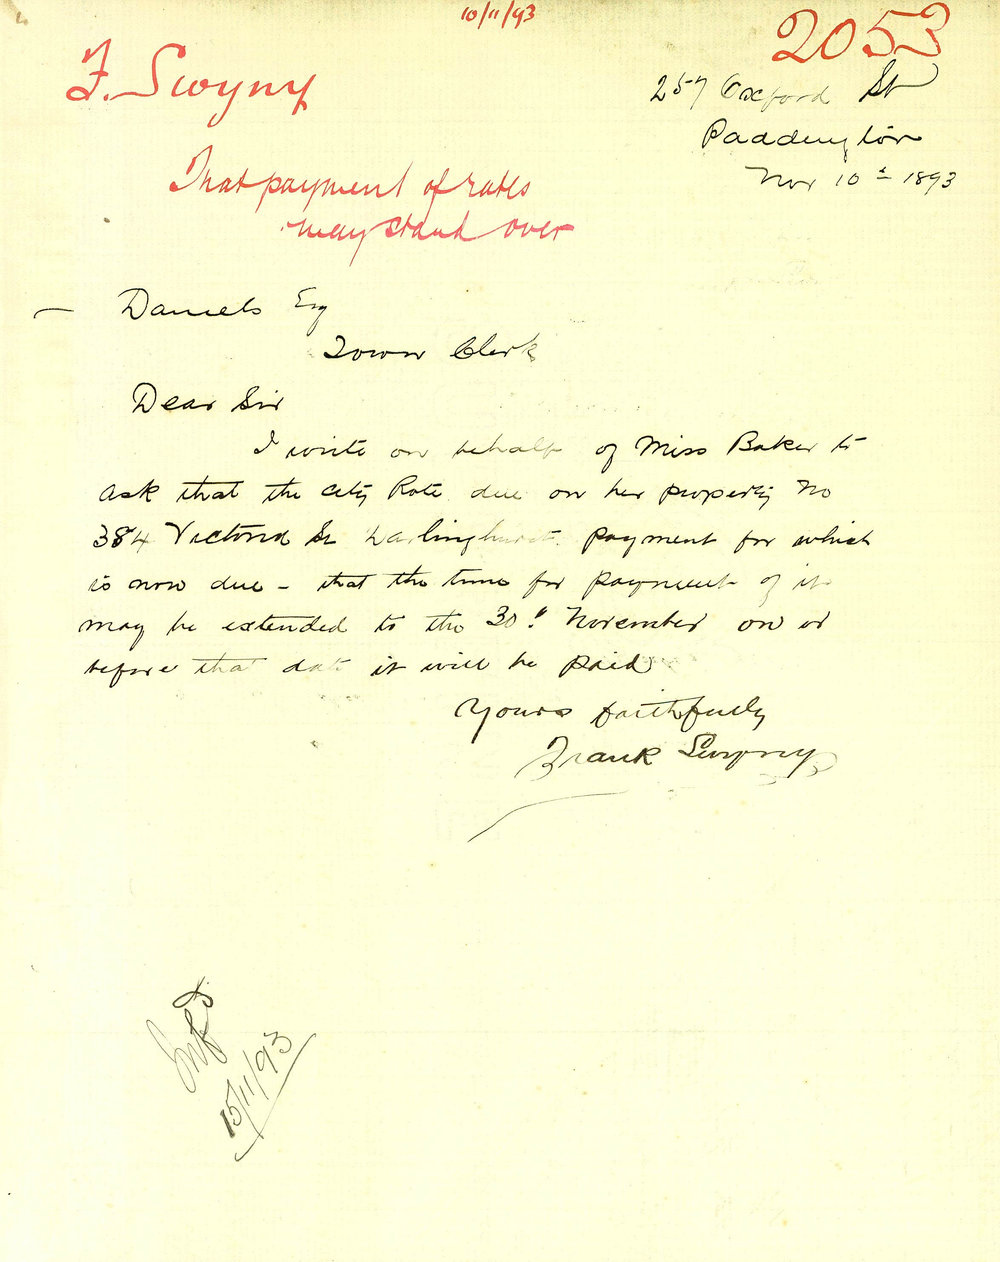 10/11/93
2053
F. Swyny
257 Oxford St
Paddington
Nov 10th 1893
That payment of rates
may stand over
— Daniels Esq
Town Clerk
Dear Sir
I write on behalf of Miss Baker to
ask that the City Rate due on her property No
384 Victoria St Darlinghurst payment for which
is now due – that the time for payment of it
may be extended to the 30th November on or
before that date it will be paid
Yours faithfully
Frank Swyny
15/11/93